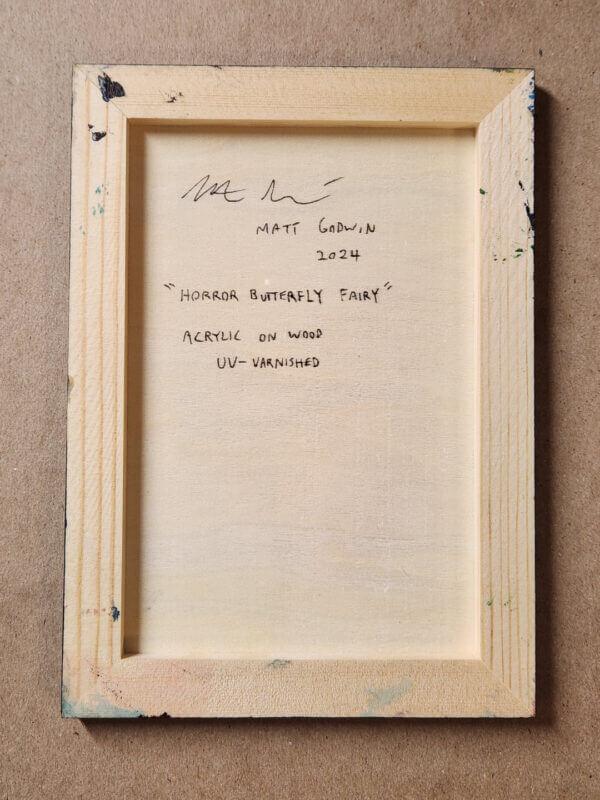 MATT GODWIN
2024
"HORROR BUTTERFLY FAIRY"
ACRYLIC ON WOOD
UV-VARNISHED